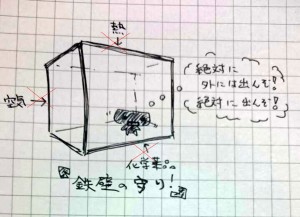 熱
絶対に
外には出んぞ!
絶対に出んぞ!
空気
化学薬品
鉄壁の守り!